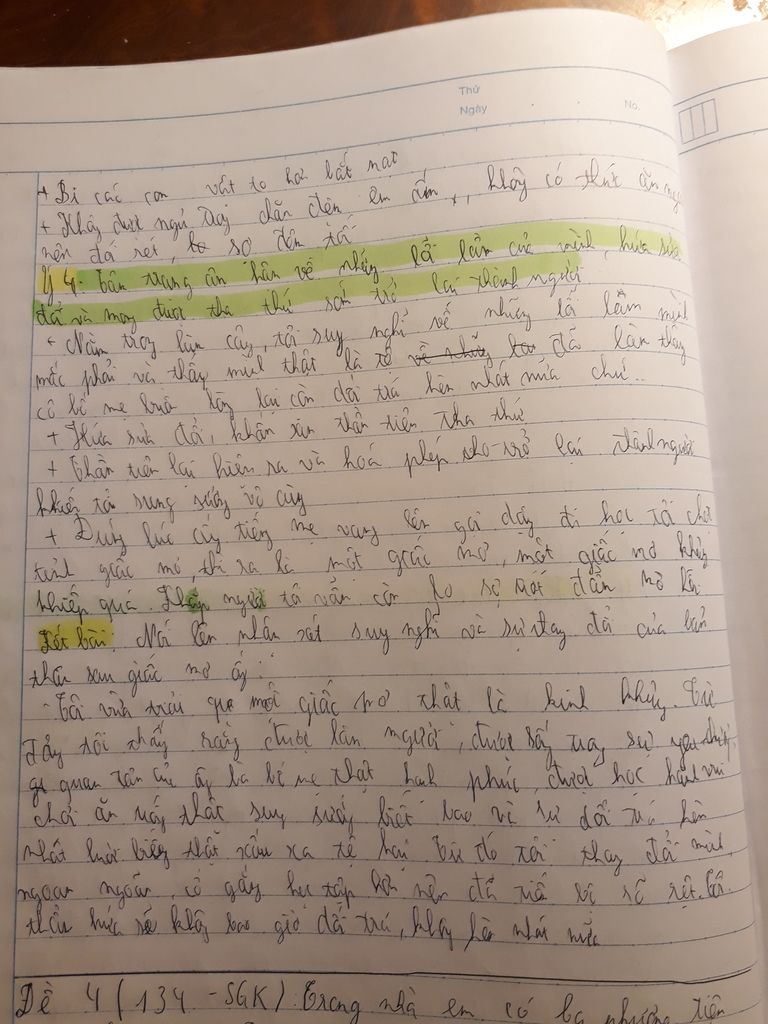 Thứ
Ngày . . No.
+ Bị các con vật to hơn bắt nạt
+ Không được ngủ trong chăn đệm êm ấm, không có thức ăn ngon
nên đói rét, sợ đêm tối
Ý 4: Tâm trạng ân hận về những lỗi lầm của mình, hứa sửa
đổi và mong được tha thứ sớm trở lại thành người
+ Nằm trong lùm cây, tôi suy nghĩ về những lỗi lầm mình
mắc phải và thấy mình thật là tồ về những đã làm thầy
cô bố mẹ buồn lòng lại còn dối trá hèn nhát nữa chứ..
+ Hứa sửa đổi, khấn xin thần tiên tha thứ
+ Thần tiên lại hiện ra và hoá phép cho trở lại thành người
khiến tôi sung sướng vô cùng
+ Đúng lúc ấy tiếng mẹ vang lên gọi dậy đi học tôi chợt
tỉnh giấc mơ, thì ra là một giấc mơ, một giấc mơ khủng
khiếp quá. Thấy người tôi vẫn còn lo sợ mồ
Kết bài: Nói lên nhận xét suy nghĩ và sự thay đổi của bản
thân sau giấc mơ ấy
- Tôi vừa trải qua một giấc mơ thật là kinh khủng. Từ
đây tôi thấy rằng được làm người, được sống trong sự yêu thương
quan tâm của bố mẹ thật hạnh phúc, được học hành vui
chơi ăn uống thật sung sướng biết bao và sự dối trá hèn
nhát lười biếng thật xấu xa tệ hại. Từ đó tôi thay đổi mình,
ngoan ngoãn, cố gắng học tập hơn nên đã tiến bộ rõ rệt. Tôi
thầm hứa sẽ không bao giờ dối trá, không hèn nhát nữa
Đề 4 (134 - SGK): Trong nhà em có ba phương tiện